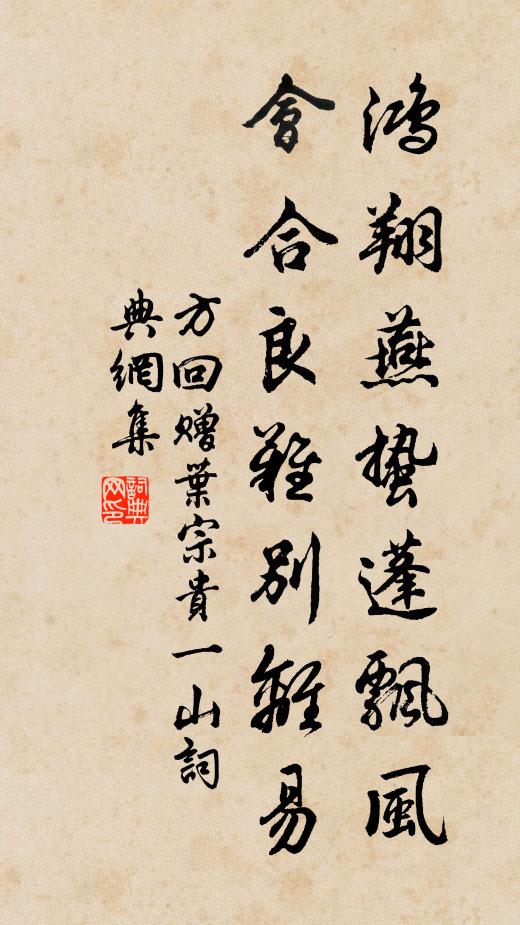 鴻翔燕蟄蓬飄風
會合良難別離易
方回贈葉宗貴一山詞
典網集
詞典網印